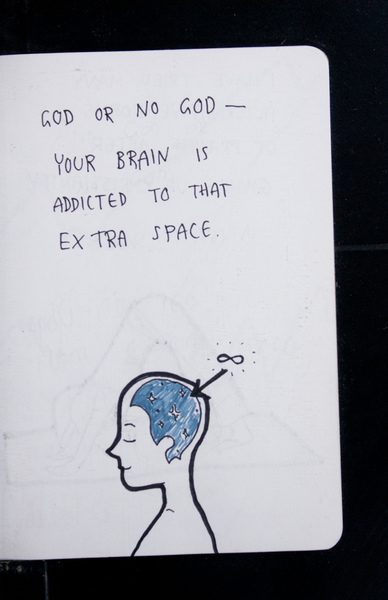 GOD OR NO GOD —
YOUR BRAIN IS
ADDICTED TO THAT
EXTRA SPACE.
∞